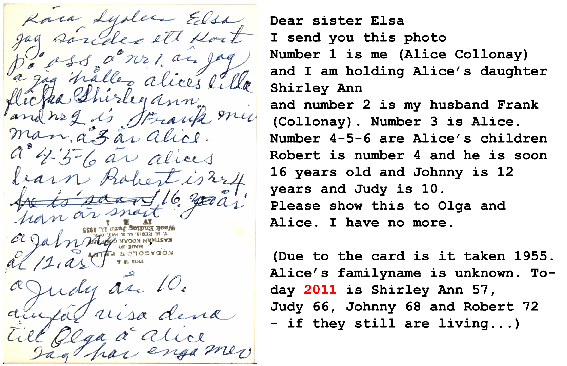 Kära Syster Elsa
jag sänder ett Kort
på oss å nr 1. är jag
å jag håller alices lilla
flicka Shirley ann
and nr 2 is Frank min
man. å 3 är Alice.
å 4-5-6 är alices
barn Robert is nr 4
he is soon 16 år
han är snart
å Johnny
är 12 år
å Judy är 10.
visa dena
till Olga å Alice
Jag har enga mer
THIS IS A
KODACOLOR PRINT
MADE BY
EASTMAN KODAK COMPANY
T. M. REGIS. U. S. PAT. OFF.
Week Ending 1955
Dear sister Elsa
I send you this photo
Number 1 is me (Alice Collonay)
and I am holding Alice's daughter
Shirley Ann
and number 2 is my husband Frank
(Collonay). Number 3 is Alice.
Number 4-5-6 are Alice's children
Robert is number 4 and he is soon
16 years old and Johnny is 12
years and Judy is 10.
Please show this to Olga and
Alice. I have no more.
(Due to the card is it taken 1955.
Alice's familyname is unknown. To-
day 2011 is Shirley Ann 57,
Judy 66, Johnny 68 and Robert 72
- if they still are living...)